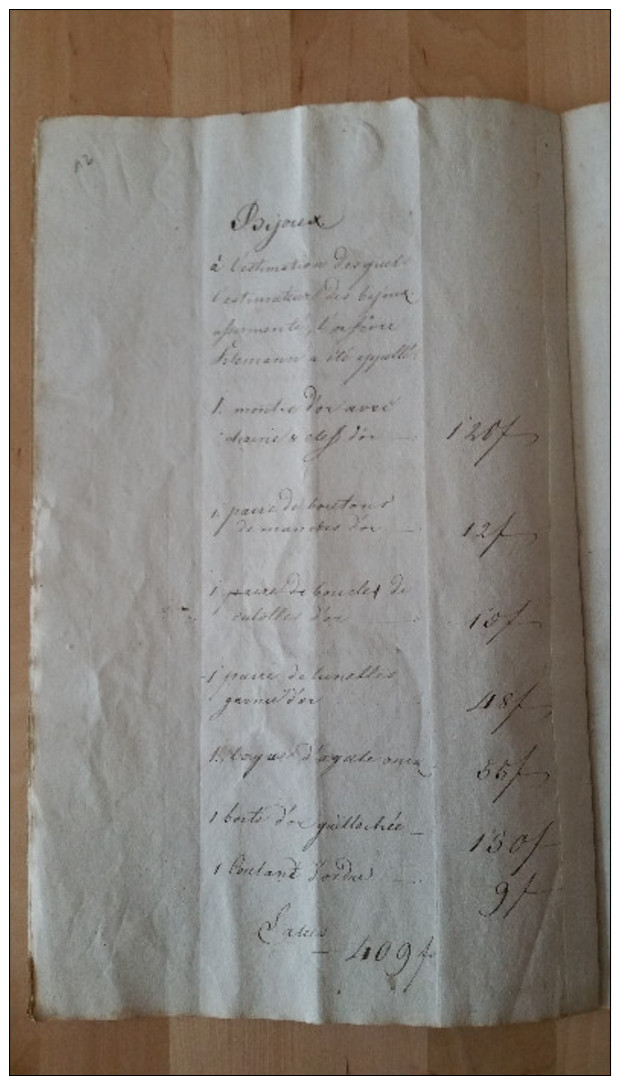 12
Bijoux
à l'estimation desquels
l'estimateur des bijoux
assermenté, l'orfèvre
a été appellé.
1. montre d'or avec
chaine & cleff d'or — 120f
1. paire de boutons
de manches d'or — 12f
1 paire de boucles de
culottes d'or — 15f
1 paire de lunettes
garnie d'or 48f
1. bague d'agate onix 55f
1 boete d'or guillochée — 150f
1 d'ordre — 9f
Latus
— 409f